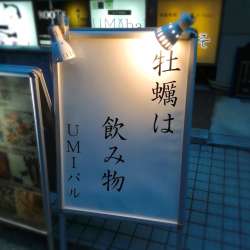 牡蠣は
飲み物
UMIバル
UMIba